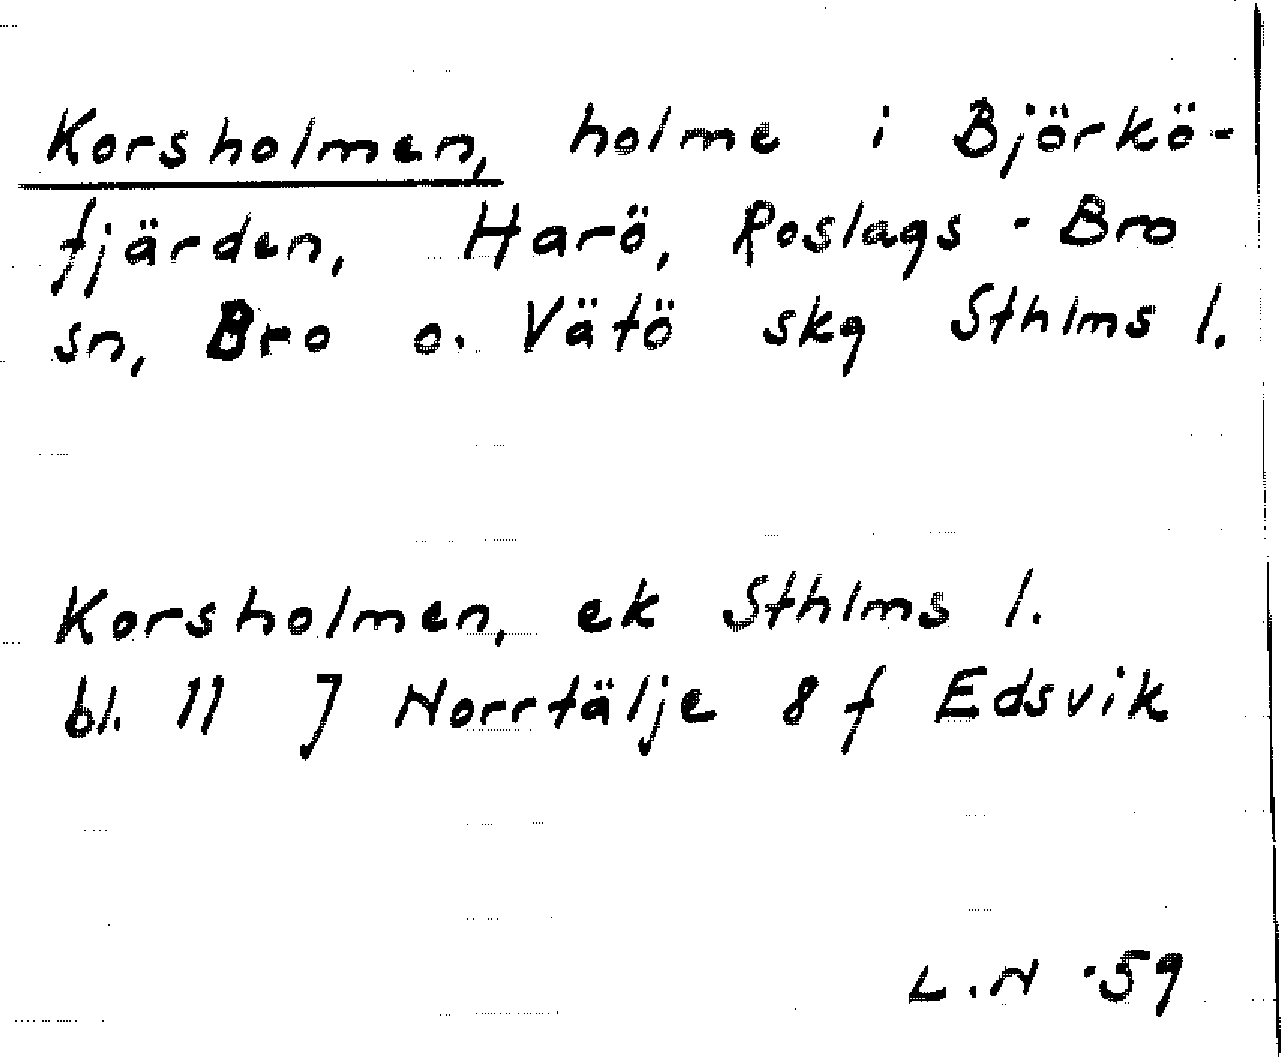 Korsholmen, holme i Björkö-
fjärden, Harö, Roslags-Bro
sn, Bro o. Vätö skg Sthlms l.
Korsholmen, ek Sthlms l.
bl. 11 J Norrtälje 8 f Edsvik
L.N -59